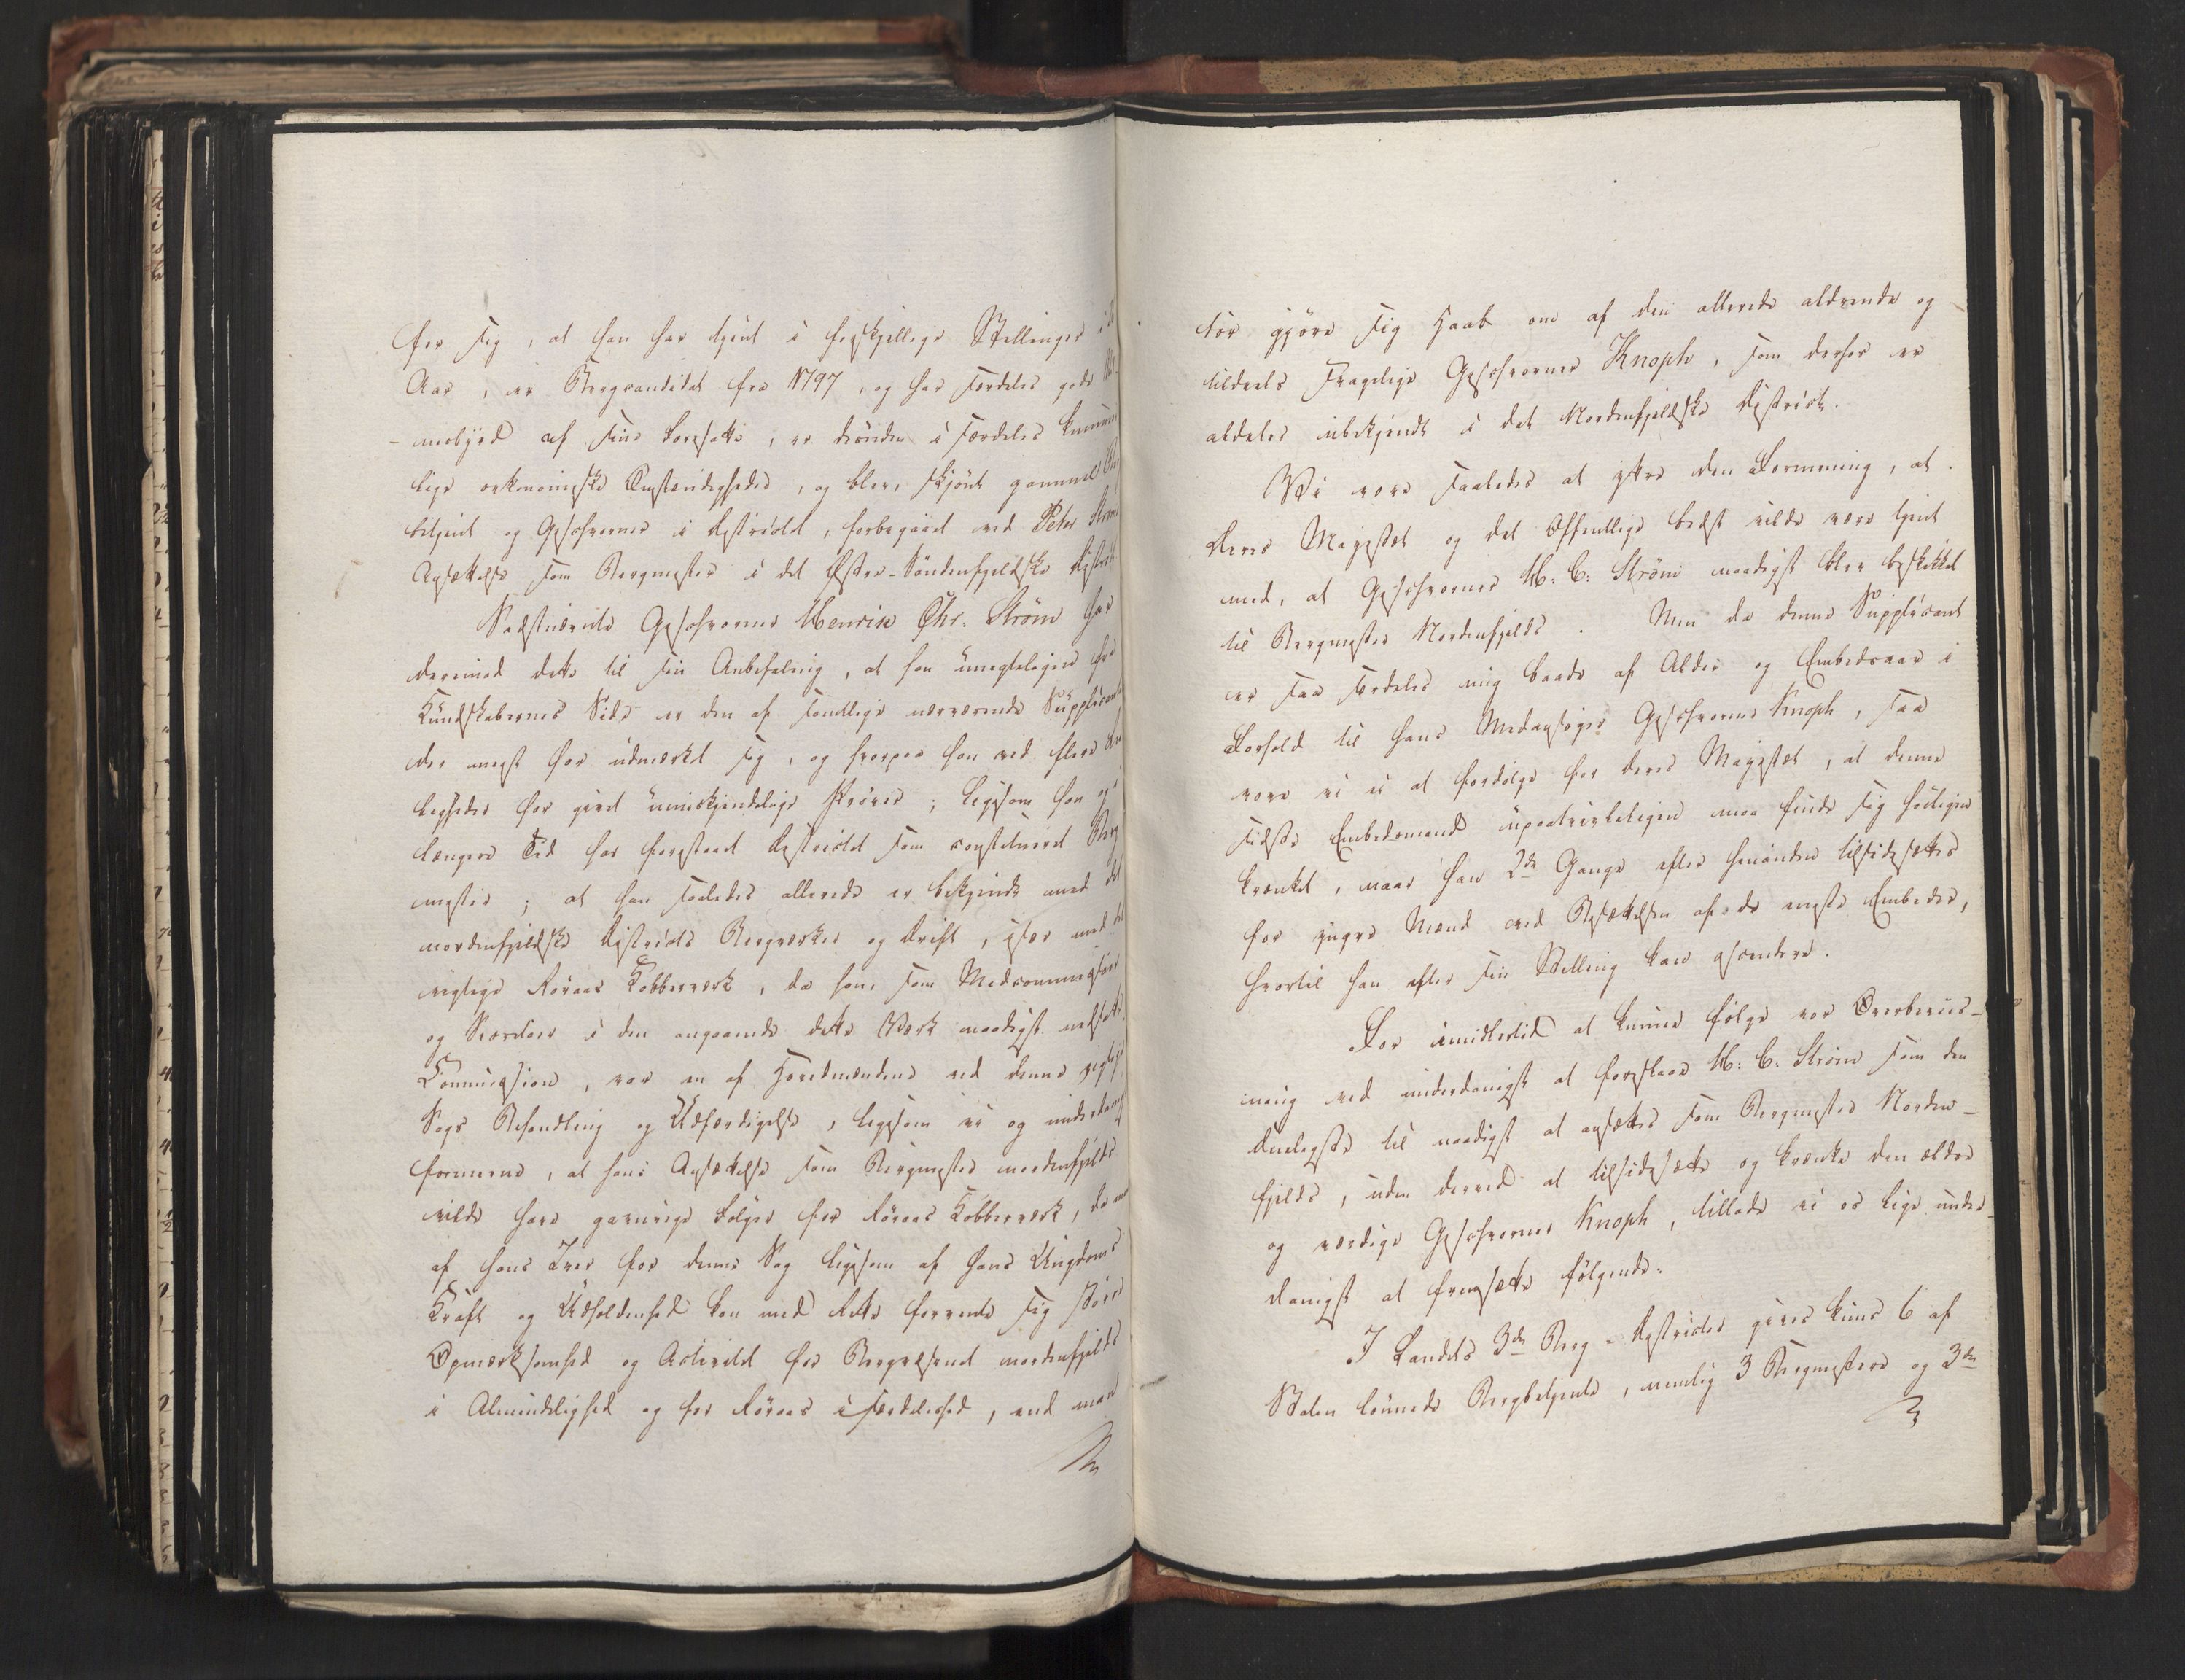 for sig, at han har tjent i forskjellige Stillinger i
Aar, er Bergcandidat fra 1797, og har særdeles gode
-nesbyrd af sine Foresatte, er desuden i særdeles kummer
lige oekonomiske Omstændigheder, og blev, skjönt gammel
betjent og Geschworner i Districtet, forbegaaet ved Peter Ström
Ansættelse som Bergmester i det Östre-Söndenfjeldske District
Næstnævnte Geschworner Henrik Chr. Ström har
derimod dette til sin Anbefaling, at han unegteligen fra
Kundskabernes Side er den af samtlige nærværende Supplicanter
der meest har udmærket sig, og hvorpaa han ved flere
ligheder har givet umiskjendelige Pröver; ligesom han og i
længere Tid har forestaaet Districtet som constitueret Berg
mester; at han saaledes allerede er bekjendt med det
nordenfjeldske Districts Bergværker og Drift, især med det
vigtige Röraas Kobberværk, da han, som Medcommissair
og Secretair i den angaaende dette Værk naadigst nedsatte
Commission, var en af Hovedmændene ved denne vigtige
Sags Behandling og Udfærdigelse, ligesom vi og underdanigst
formene, at hans Ansættelse som Bergmester nordenfjelds
vilde have gavnrige Fölger for Röraas Kobberværk, da man
af hans Iver for denne Sag ligesom af hans Ungdoms
Kraft og Udholdenhed kan med Rette forvente sig större
Opmærksomhed og Activitet for Bergvæsenet nordenfjelds
i Almindelighed og for Röraas i Særdeleshed, end man
tör gjöre sig Haab om af den allerede aldrende og
tildeels svagelige Geschworner Knoph, som derhos er
aldeles ubekjendt i det Nordenfjeldske District.
Vi vove saaledes at yttre den Formening, at
Deres Majestæt og det Offentlige bedst vilde være tjent
med, at Geschworner H: C: Ström naadigst blev beskikket
til Bergmester Nordenfjelds. Men da denne Supplicant
er saa særdeles ung baade af Alder og Embedsaar i
Forhold til hans Medansöger Geschworner Knoph, saa
vove vi ei at fordölge for Deres Majestæt, at denne
sidste Embedsmand upaatvivleligen maa finde sig höiligen
krænket, naar han 2de Gange efter hinanden tilsidesættes
for yngre Mænd ved Besættelsen af de eneste Embeder,
hvortil han efter sin Stilling kan aspirere.
For imidlertid at kunne fölge vor Overbeviis-
ning ved underdanigst at foreslaae H: C: Ström som den
dueligste til naadigst at ansættes som Bergmester Norden-
fjelds, uden derved at tilsidesætte og krænke den ældre
og værdige Geschworner Knoph, tillade vi os lige under-
danigst at fremsætte fölgende:
I Landets 3de Berg-Districter gives kuns 6 af
Staten lönnede Bergbetjente, nemlig 3 Bergmestere og 3de